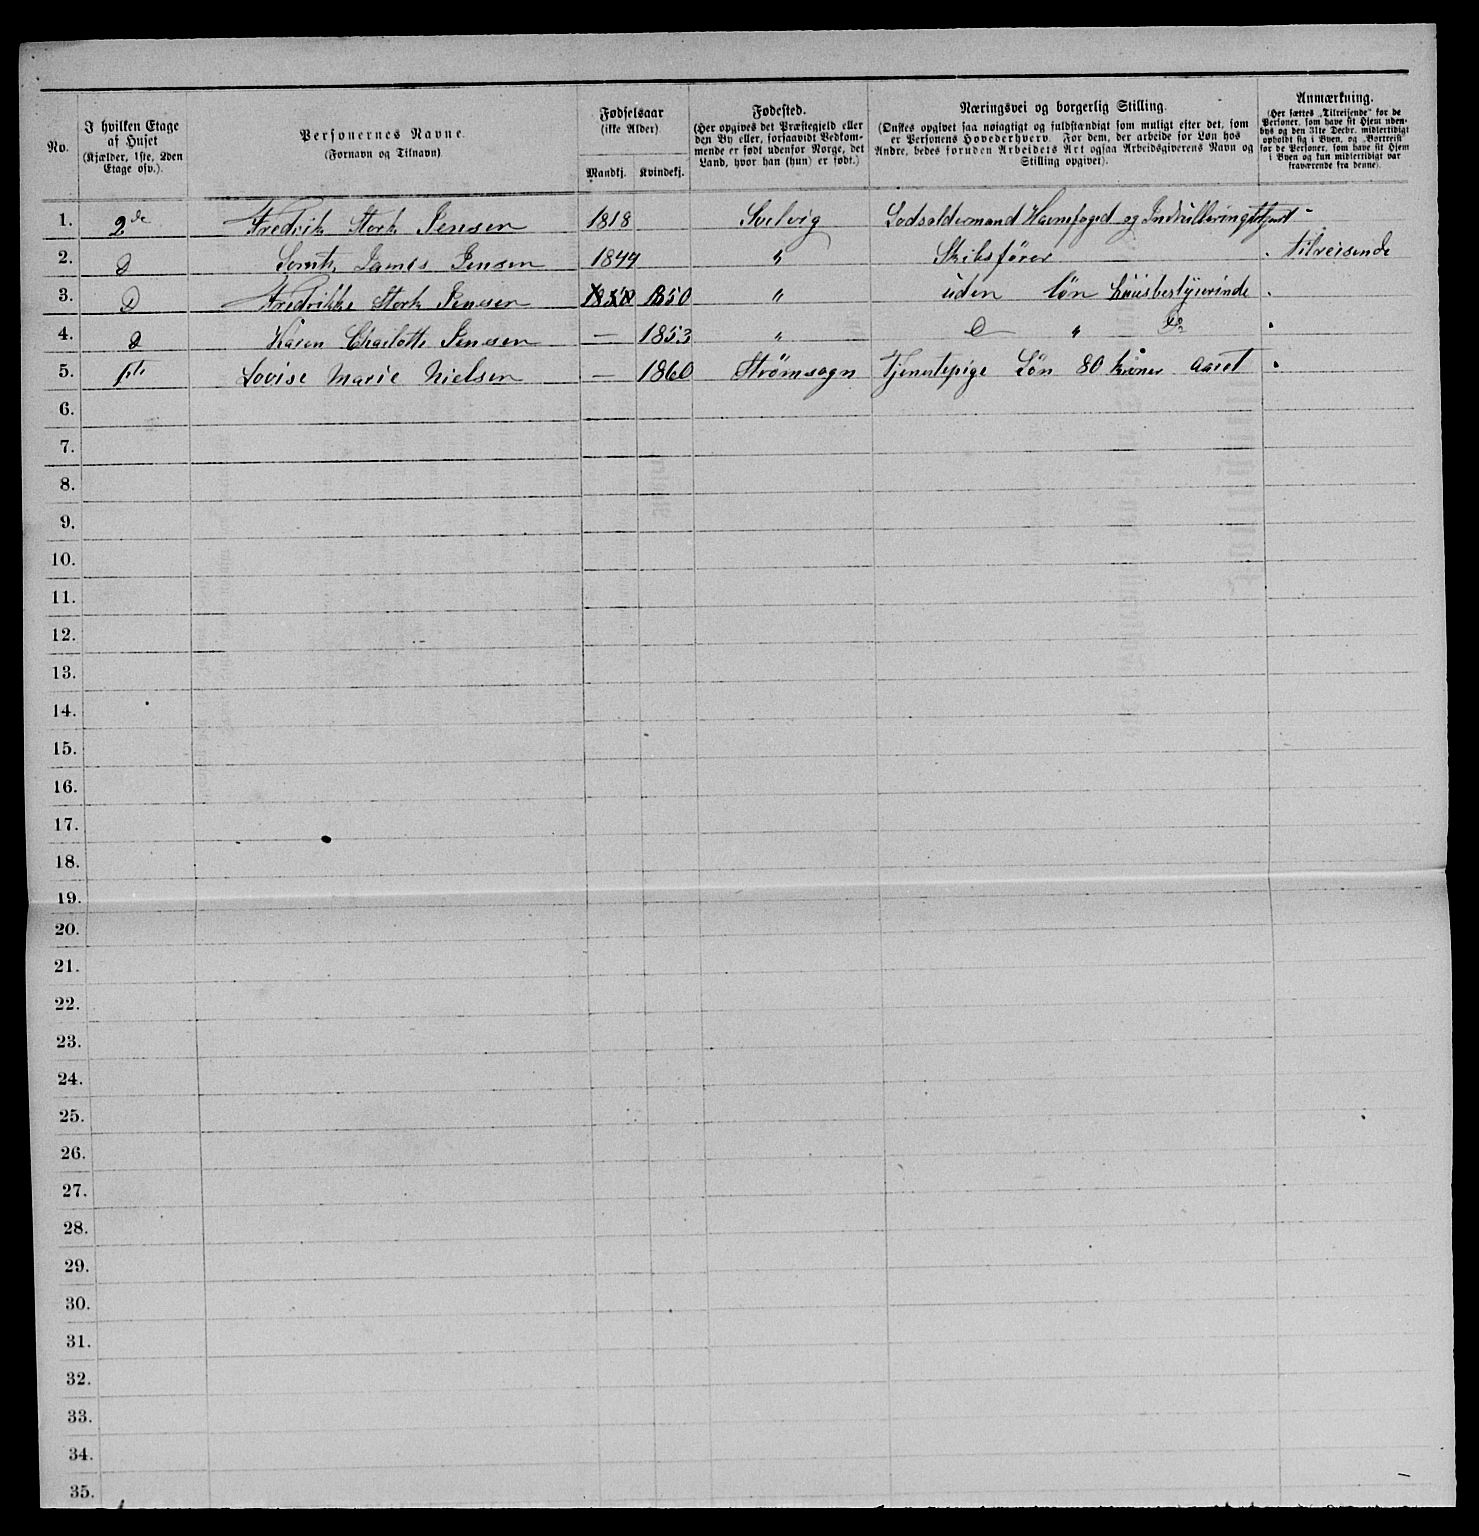 No. | I hvilken Etage af Huset (Kjælder, 1ste, 2den Etage osv.). | Personernes Navne. (Fornavn og Tilnavn) | Fødselsaar (ikke Alder) Mandkj. | Kvindekj. | Fødested. (Her opgives det Præstegjeld eller den By eller, forsaavidt Vedkommende er født udenfor Norge, det Land, hvor han (hun) er født.) | Næringsvei og borgerlig Stilling. (Ønskes opgivet saa nøiagtigt og fuldstændigt som muligt efter det, som er Personens Hovederhverv. For dem, der arbeide for Løn hos Andre, bedes foruden Arbeidets Art ogsaa Arbeidsgiverens Navn og Stilling opgivet). | Anmærkning. (Her sættes „Tilreisende” for de Personer, som have sit Hjem udenbys og den 31te Decbr. midlertidigt opholdt sig i Byen, og „Bortreist” for de Personer, som have sit Hjem i Byen og kun midlertidigt var fraværende fra denne).
1. | 2de | Fredrik Stork Jensen | 1818 | | Svelvig | Lodsoldermand Havnefoged og
2. | D | James Jensen | 1849 | | " | Skibsfører | tilreisende
3. | D | Fredrikke Stork Jensen | | 1850 | " | uden løn huusbestyrerinde
4. | D | Karen Charlotte Jensen | — | 1853 | " | D " Do
5. | | Lovise Marie Nielsen | — | 1860 | Strømsogn | Tjenestepige Løn 80 kroner Aaret
6.
7.
8.
9.
10.
11.
12.
13.
14.
15.
16.
17.
18.
19.
20.
21.
22.
23.
24.
25.
26.
27.
28.
29.
30.
31.
32.
33.
34.
35.